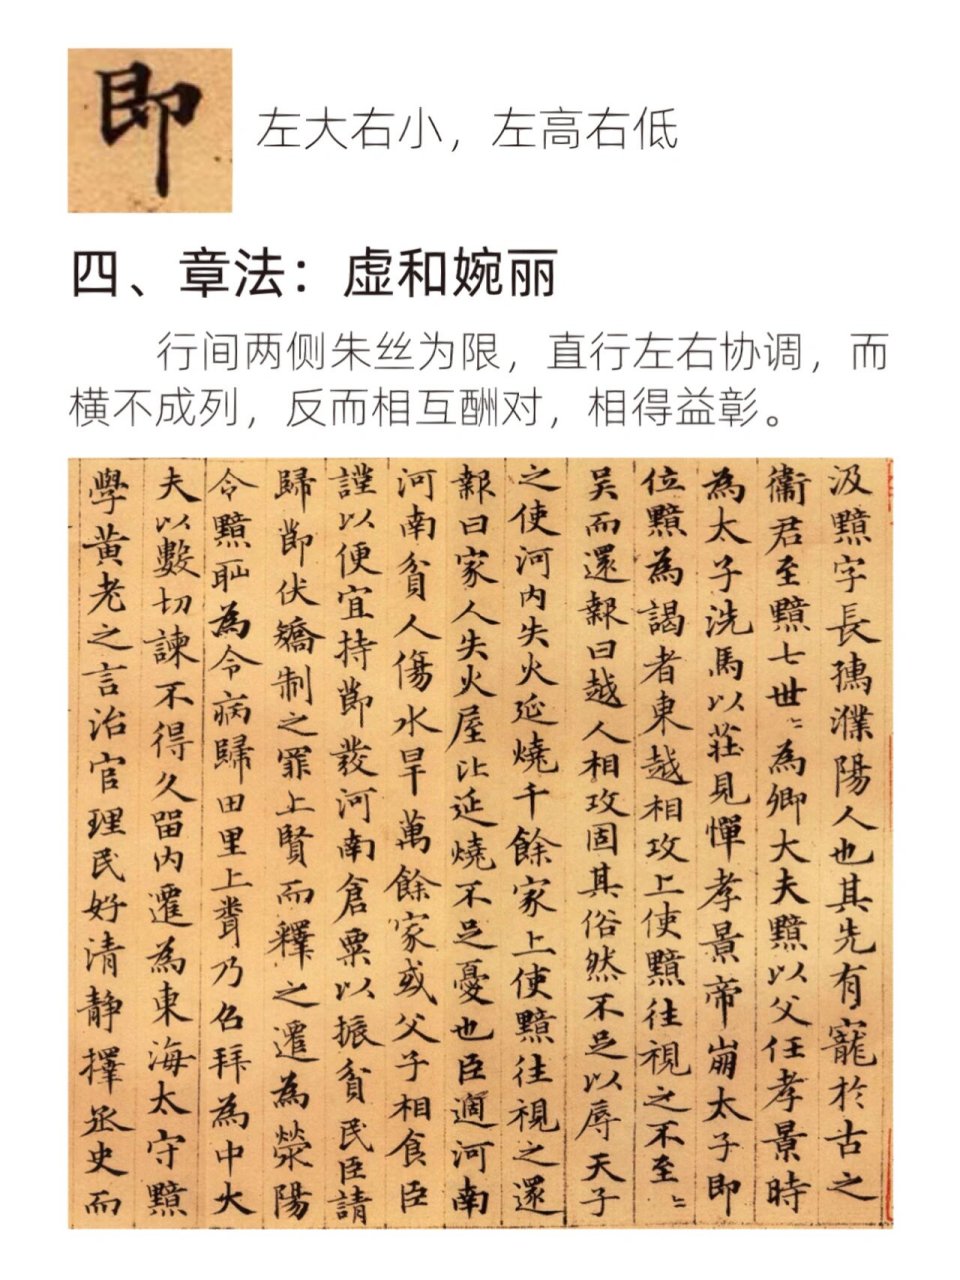 即
左大右小，左高右低
四、章法：虚和婉丽
行间两侧朱丝为限，直行左右协调，而
横不成列，反而相互酬对，相得益彰。
汲黯字長孺濮陽人也其先有寵於古之
衛君至黯七世〻為卿大夫黯以父任孝景時
為太子洗馬以莊見憚孝景帝崩太子即
位黯為謁者東越相攻上使黯往視之不至〻
吴而還報曰越人相攻固其俗然不足以辱天子
之使河内失火延燒千餘家上使黯往視之還
報曰家人失火屋比延燒不足憂也臣過河南
河南貧人傷水旱萬餘家或父子相食臣
謹以便宜持節發河南倉粟以振貧民臣請
歸節伏矯制之罪上賢而釋之遷為滎陽
令黯恥為令病歸田里上聞乃召拜為中大
夫以數切諫不得久留内遷為東海太守黯
學黄老之言治官理民好清靜擇丞史而